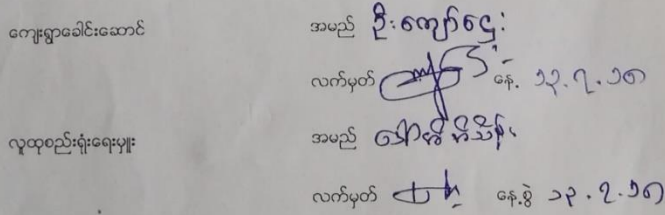 ကျေးရွာခေါင်းဆောင် အမည် ဦးကျော်ဌေး
လက်မှတ် နေ့ ၁၃.၇.၁၈
လူထုစည်းရုံးရေးမှူး အမည်
လက်မှတ် နေ့စွဲ ၁၃.၇.၁၈